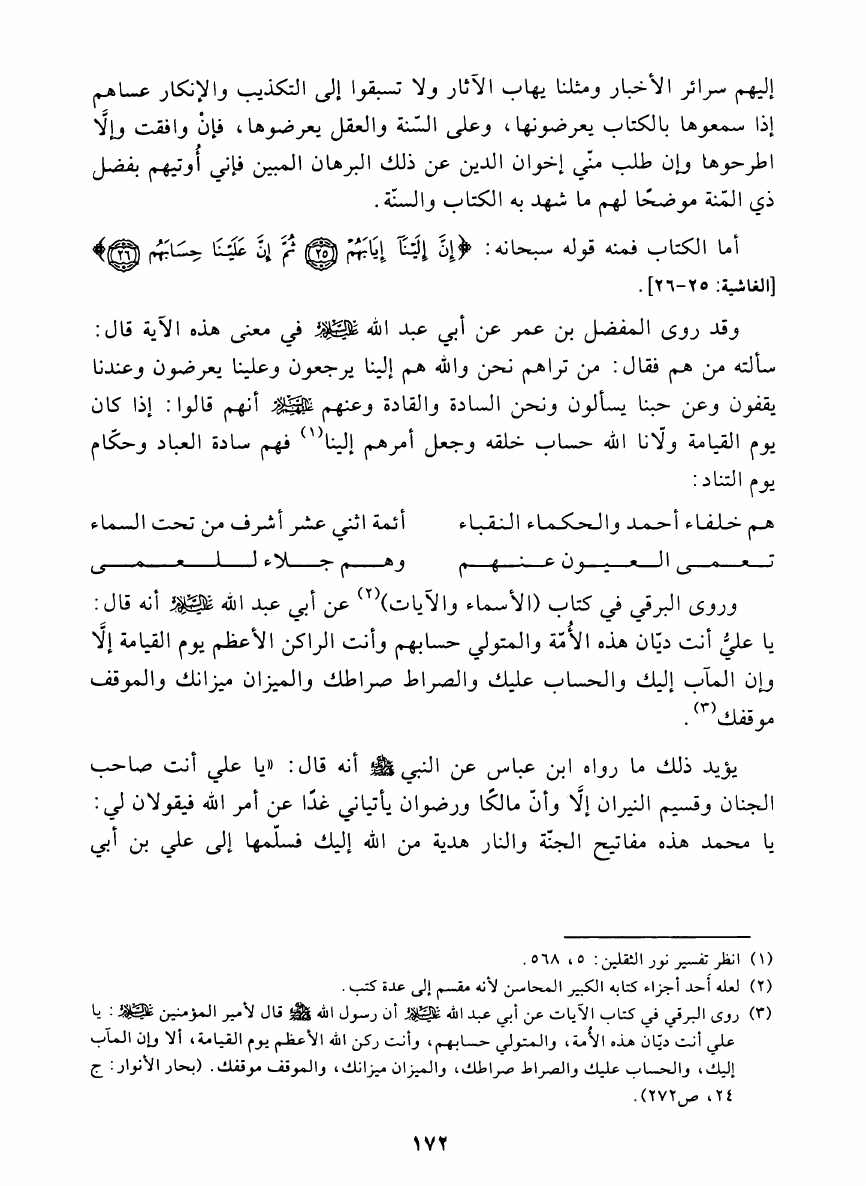 إليهم سرائر الأخبار ومثلنا يهاب الآثار ولا تسبقوا إلى التكذيب والإنكار عساهم
إذا سمعوها بالكتاب يعرضونها، وعلى السّنة والعقل يعرضوها، فإنْ وافقت وإلَّا
اطرحوها وإن طلب منّي إخوان الدين عن ذلك البرهان المبين فإني أُوتيهم بفضل
ذي المّنة موضحًا لهم ما شهد به الكتاب والسنّة.
أما الكتاب فمنه قوله سبحانه: ﴿إِنَّ إِلَيْنَآ إِيَابَهُمْ ۝٢٥ ثُمَّ إِنَّ عَلَيْنَا حِسَابَهُم ۝٢٦﴾
[الغاشية: ٢٥-٢٦].
وقد روى المفضل بن عمر عن أبي عبد الله عليه السلام في معنى هذه الآية قال:
سألته من هم فقال: من تراهم نحن والله هم إلينا يرجعون وعلينا يعرضون وعندنا
يقفون وعن حبنا يسألون ونحن السادة والقادة وعنهم عليهم السلام أنهم قالوا: إذا كان
يوم القيامة ولّانا الله حساب خلقه وجعل أمرهم إلينا(١) فهم سادة العباد وحكّام
يوم التناد:
هم خلفاء أحمد والحكماء النقباء أئمة اثني عشر أشرف من تحت السماء
تعمى العيون عنهم وهم جلاء للعمى
وروى البرقي في كتاب (الأسماء والآيات)(٢) عن أبي عبد الله عليه السلام أنه قال:
يا عليُّ أنت ديّان هذه الأُمّة والمتولي حسابهم وأنت الراكن الأعظم يوم القيامة إلَّا
وإن المآب إليك والحساب عليك والصراط صراطك والميزان ميزانك والموقف
موقفك(٣).
يؤيد ذلك ما رواه ابن عباس عن النبي ﷺ أنه قال: «يا علي أنت صاحب
الجنان وقسيم النيران إلَّا وأنّ مالكًا ورضوان يأتياني غدًا عن أمر الله فيقولان لي:
يا محمد هذه مفاتيح الجنّة والنار هدية من الله إليك فسلّمها إلى علي بن أبي
(١) انظر تفسير نور الثقلين: ٥، ٥٦٨.
(٢) لعله أحد أجزاء كتابه الكبير المحاسن لأنه مقسم إلى عدة كتب.
(٣) روى البرقي في كتاب الآيات عن أبي عبد الله عليه السلام أن رسول الله ﷺ قال لأمير المؤمنين عليه السلام: يا
علي أنت ديّان هذه الأُمة، والمتولي حسابهم، وأنت ركن الله الأعظم يوم القيامة، ألا وإن المآب
إليك، والحساب عليك والصراط صراطك، والميزان ميزانك، والموقف موقفك. (بحار الأنوار: ج
٢٤، ص٢٧٢).
١٧٢